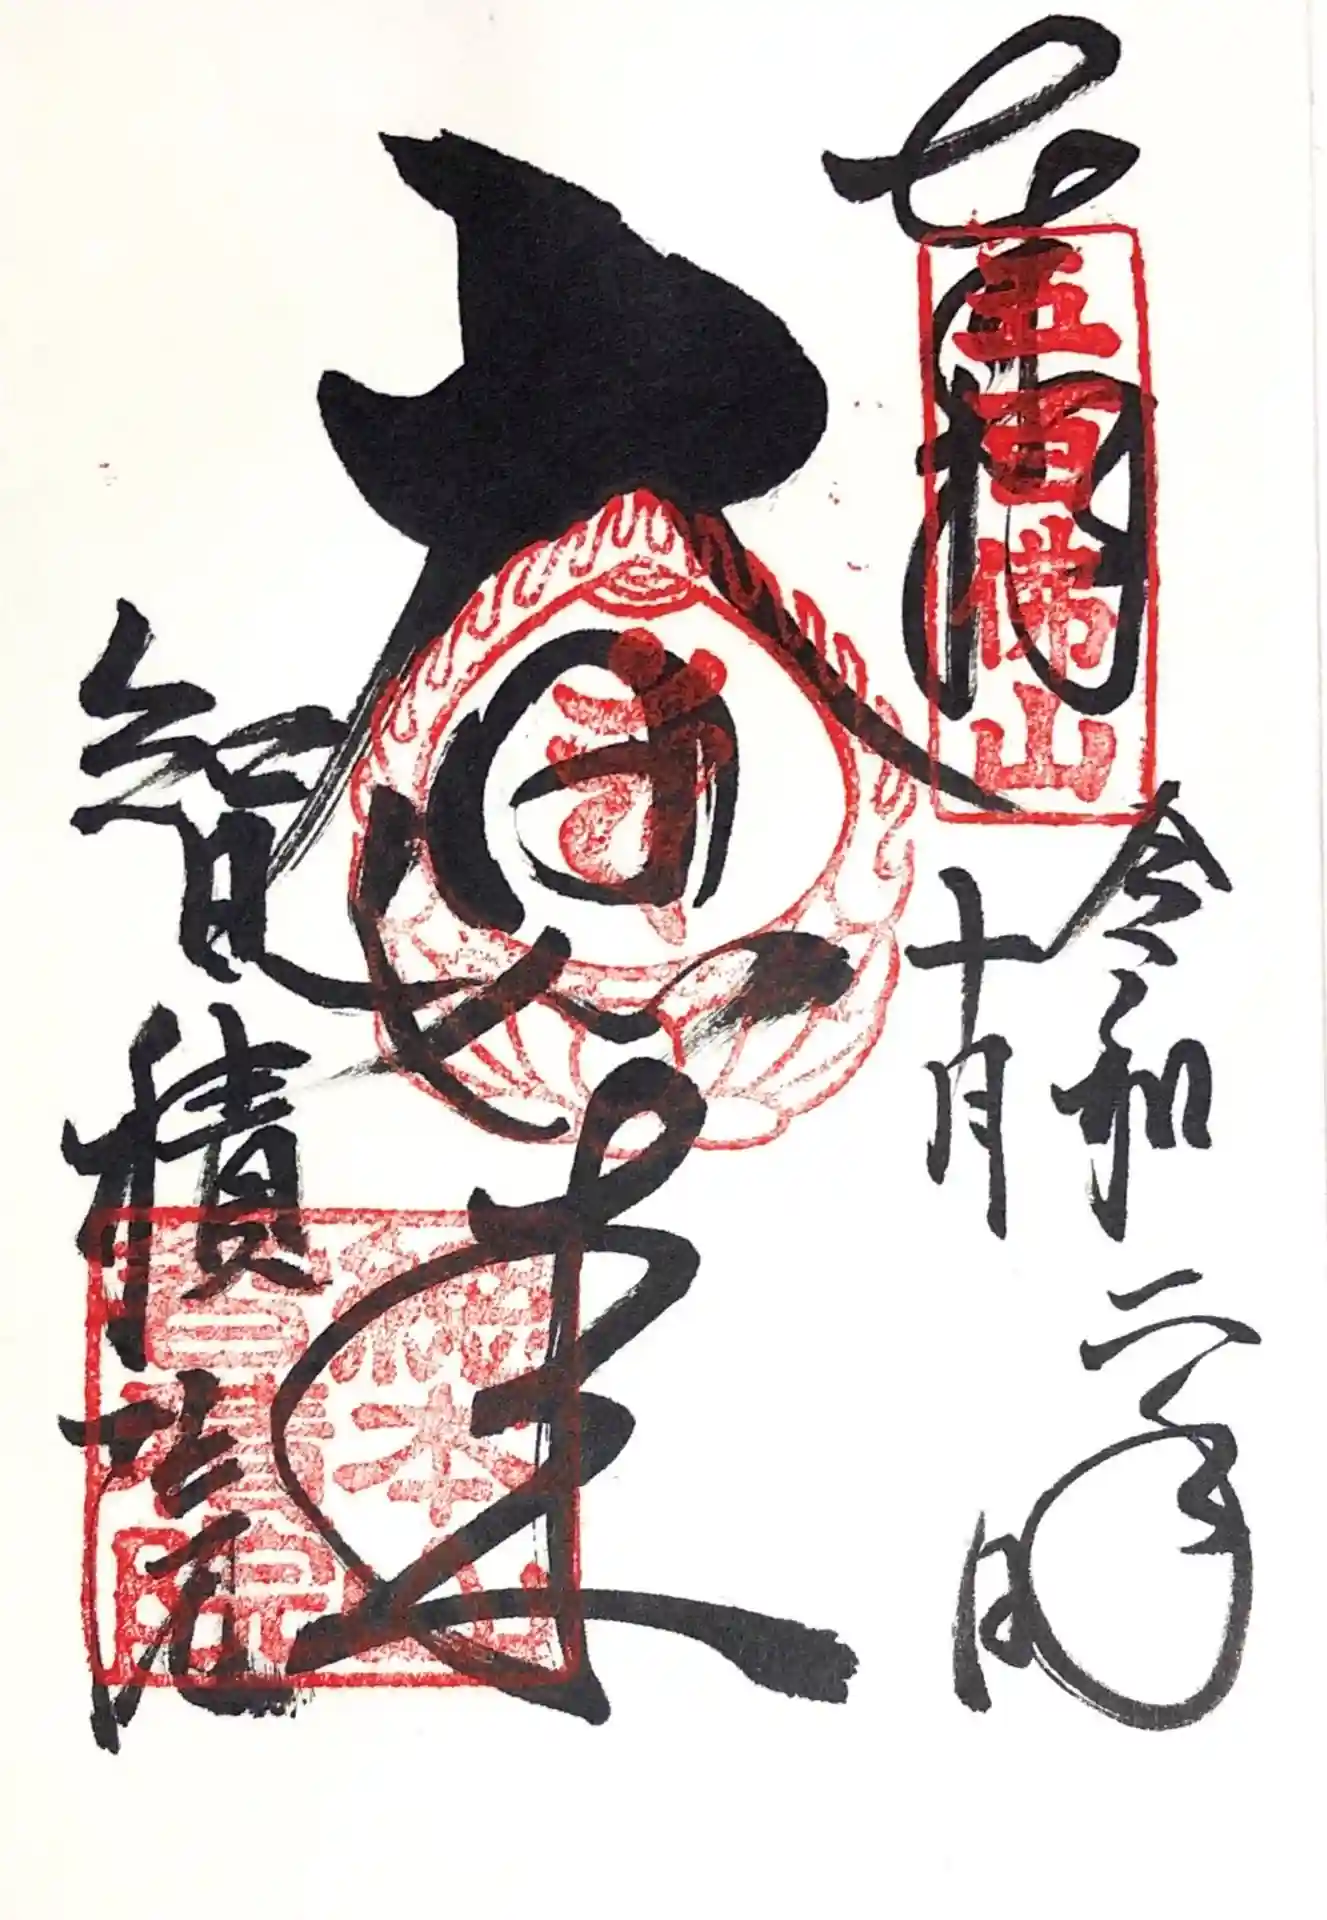 奉拝
五百佛山
令和二年
十月
日
大日如来
智積院
根本山
智積院